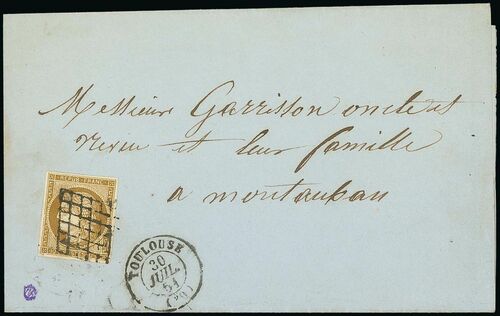 Messieurs Garrisson oncle et
neveu et leur famille
a montauban
REPUB. FRANC.
TOULOUSE
30
JUIL.
51